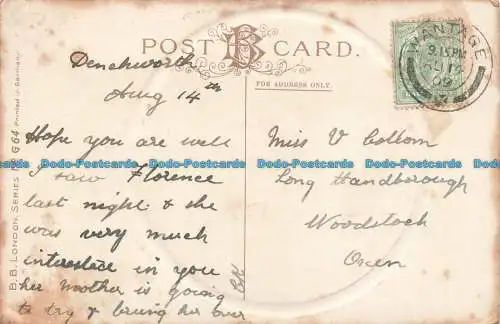 POST CARD.
FOR ADDRESS ONLY.
WANTAGE
9.15PM
AU 17
09
B.B. LONDON. SERIES No G64 Printed in Germany.
Denchworth
Aug 14th
Hope you are well
I saw Florence
last night & she
was very much
interested in you
her Mother is going
to try & bring her over
Miss V Collom
Long Handborough
Woodstock
Oxon
Dodo-Postcards Dodo-Postcards Dodo-Postcards Dodo-Postcards